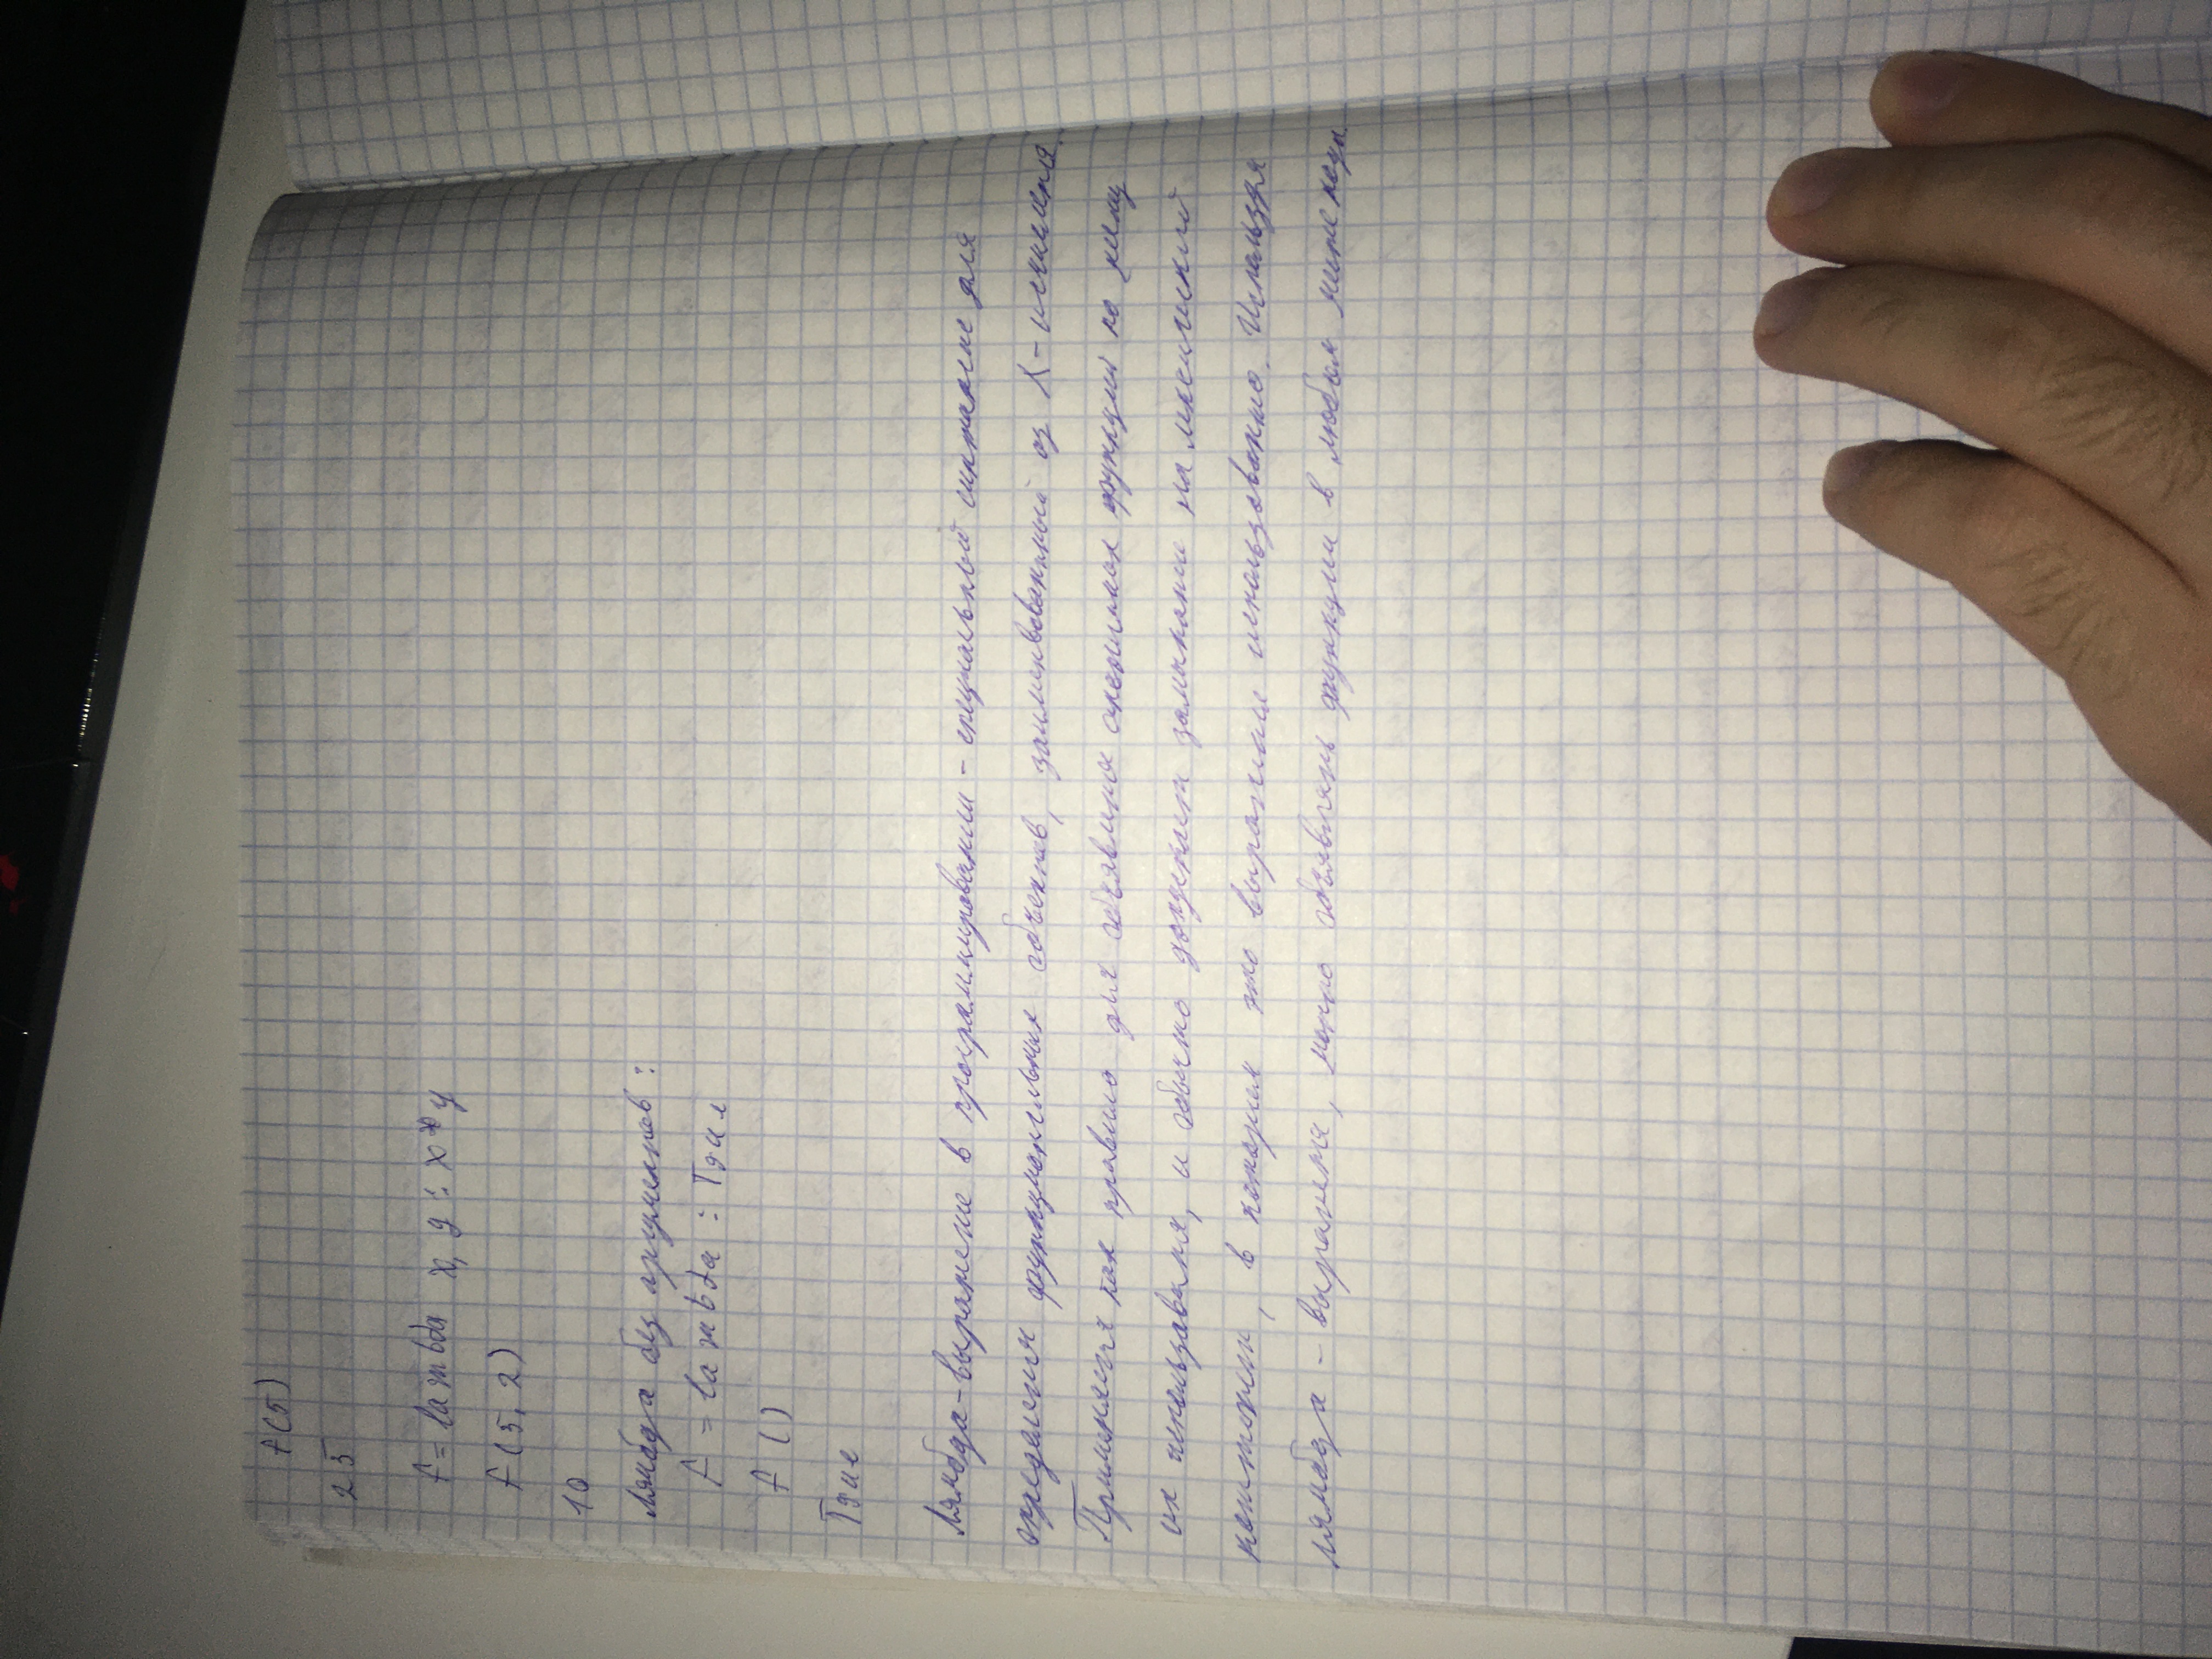 f(5)
25
f = lambda x, y : x * y
f(5, 2)
10
Лямбда без аргументов :
f = lambda : True
f ()
True
Лямбда-выражение в программировании - специальный синтаксис для
определения функциональных объектов, заимствованный из λ - исчисления.
Применяется как правило для объявления анонимных функций по месту
их использования, и обычно допускает замыкание на лексический
контекст, в котором это выражение использовано. Используя
лямбда - выражения, можно объявлять функции в любом месте кода.